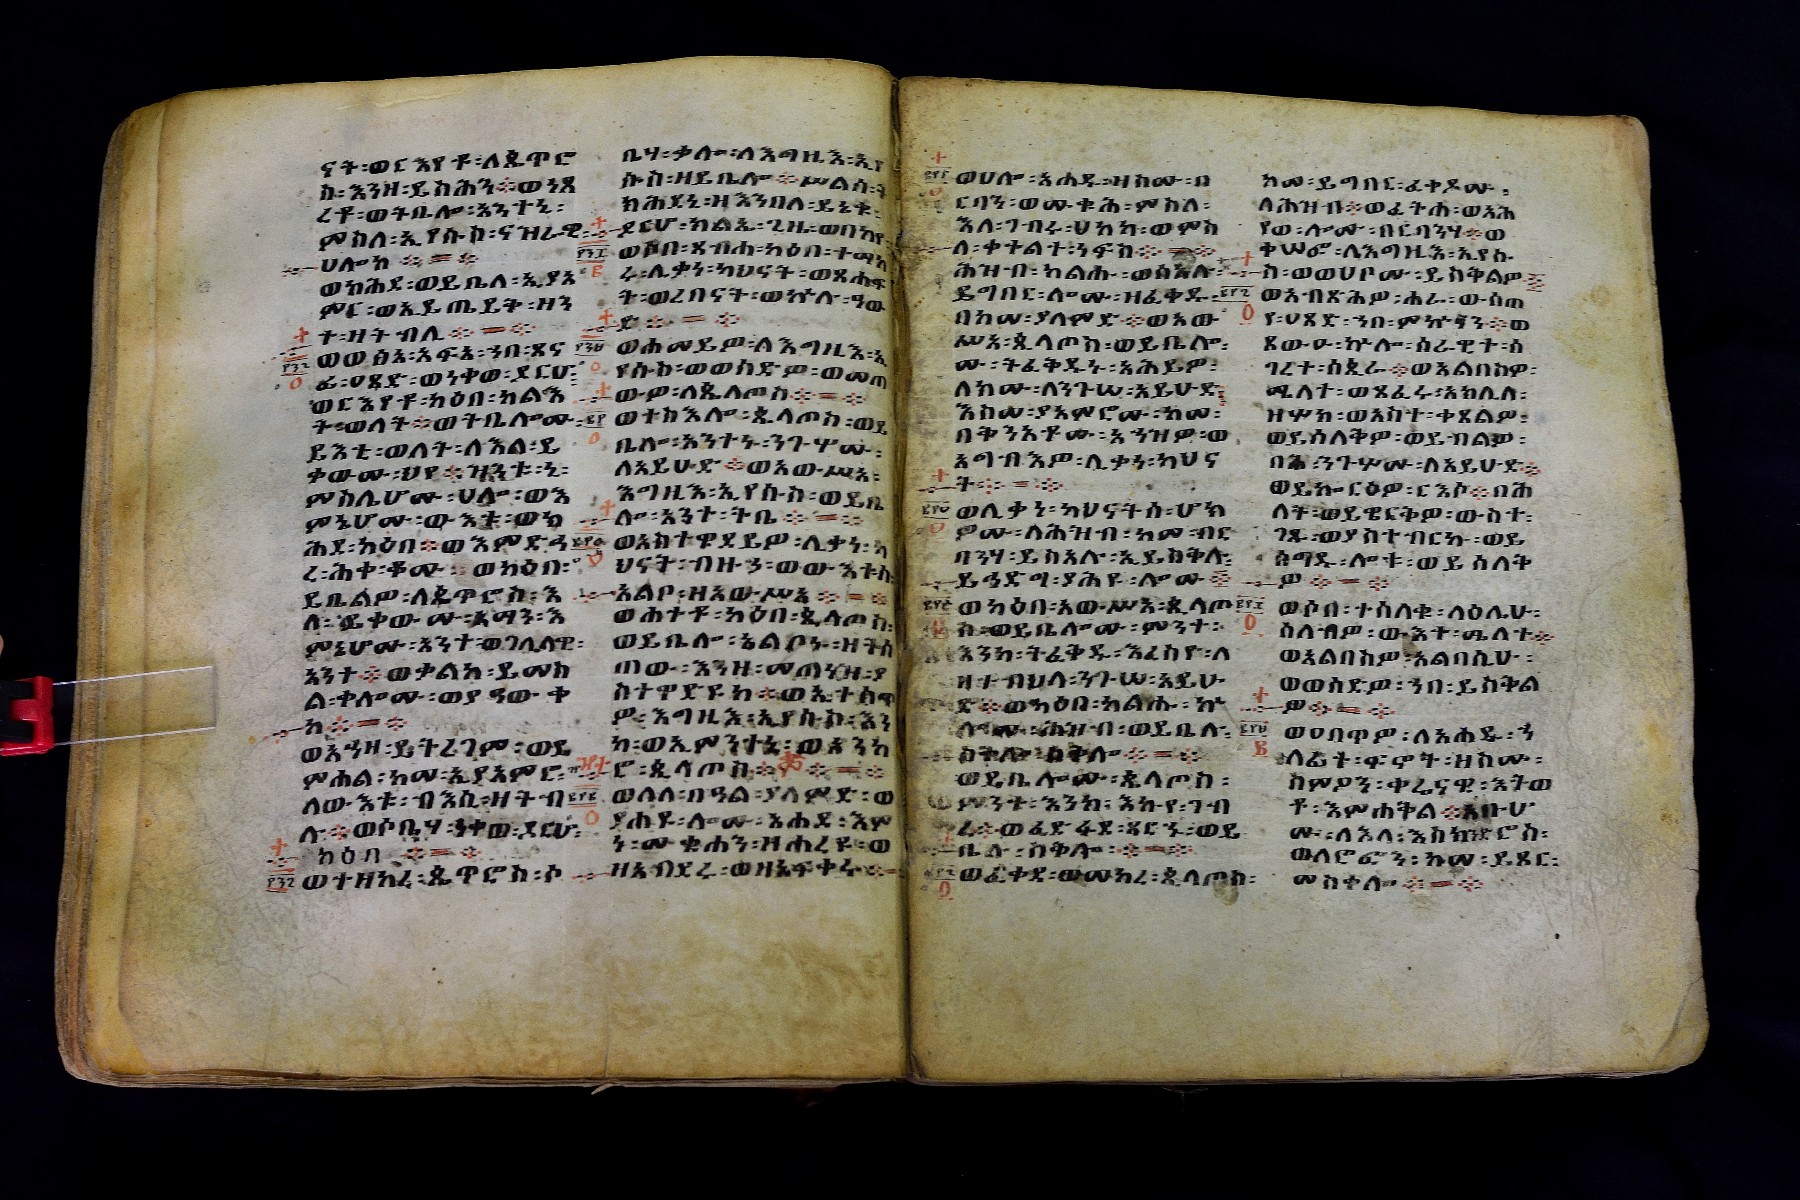 ናት፡ወርእየቶ፡ለጴጥሮ
ስ፡እንዘ፡ይስሕን፨ወነጸ
ረቶ፡ወትቤሎ፡አንተኒ፡
ምስለ፡ኢየሱስ፡ናዝራዊ፡
ሀሎከ፨=፨
ወክሕደ፡ወይቤለ፡ኢያአ
ምር፡ወአይጤይቅ፡ዘን
ት፡ዘትብሊ፨=፨
ወወፅአ፡አፍአ፡ኀበ፡ጸና
ፊ፡ሀጸድ፡ወነቀወ፡ዶርሆ፡
ወርእየቶ፡ካዕበ፡ካልእ
ት፡ወለት፨ወትቤሎሙ፡
ይእቲ፡ወለት፡ለእል፡ይ
ቀውሙ፡ህየ፨ዝንቱ፡ኒ፡
ምስሌሆሙ፡ሀሎ፡ወእ
ምኔሆሙ፡ውእቱ፡ወክ
ሕደ፡ካዕበ፨ወእምድኅ
ረ፡ሕቀ፡ቆሙ፡ወካዕበ፡
ይቤልዎ፡ለጴጥሮስ፡እ
ለ፡ይቀውሙ፡አማን፡እ
ምኔሆሙ፡አንተ፡ወገሊላዊ፡
አንተ፨ወቃልከ፡ይመስ
ል፡ቀሎሙ፡ወያዓውቀ
ከ፨=፨
ወአኀዘ፡ይትረገም፡ወይ
ምሐል፡ከመ፡ኢያአምሮ፡
ለውእቱ፡ብእሲ፡ዘትብ
ሉ፨ወሶቤሃ፡ነቀወ፡ዶርሆ፡
ካዕበ፨=፨
ወተዘከረ፡ጴጥሮስ፡ሶ
ቤሃ፡ቃሎ፡ለእግዚእ፡ኢየ
ሱስ፡ዘይቤሎ፨ሥልሰ፡ት
ክሕደኒ፡ዘእንበለ፡ይኔቁ፡
ዶርሆ፡ካልኤ፡ጊዜ፡ወበከየ፡
ወሶበ፡ጸብሐ፡ካዕበ፡ተማከ
ሩ፡ሊቃነ፡ካህናት፡ወጸሐፍ
ት፡ወረበናት፡ወኵሉ፡ዓው
ድ፨=፨
ወሐመይዎ፡ለእግዚእ፡ኢ
የሱስ፡ወወስድዎ፡ወመጠ
ውዎ፡ለጲላጦስ፨=፨
ወተስእሎ፡ጲላጦስ፡ወይ
ቤሎ፡አንተኑ፡ንጉሦሙ፡
ለአይሁድ፨ወአውሥአ፡
እግዚእ፡ኢየሱስ፡ወይቤ
ሎ፡አንተ፡ትቤ፨=፨
ወአስተዋደይዎ፡ሊቃነ፡ካ
ህናት፡ብዙኀ፡ወውእቱሰ፡
አልቦ፡ዘአውሥአ፨=፨
ወሐተቶ፡ካዕበ፡ጲላጦስ፡
ወይቤሎ፡ኤልቦኑ፡ዘትስ
ጠው፡እንዘ፡መጠነዝ፡ያ
ስተዋድዩከ፨ወኢተሰጥ
ዎ፡እግዚእ፡ኢየሱስ፡እን
ከ፡ወኢምንተኒ፡ወአንከ
ሮ፡ጲላጦስ፨=፨
ወለለ፡በዓል፡ያለምድ፡ወ
ያሐዩ፡ሎሙ፡አሐደ፡እም
ነ፡ሙቁሐን፡ዘሐረዩ፡ወ
ዘአብደረ፡ወዘአፍቀሩ፨
ወሀሎ፡አሐዱ፡ዘስሙ፡በ
ርባን፡ወሙቁሕ፡ምስለ፡
እለ፡ገብሩ፡ሀከከ፡ወምስ
ለ፡ቀተልተ፡ነፍስ፨=፨
ሕዝብ፡ከልሑ፡ወሰአሉ፡
ይግበር፡ሎሙ፡ዘፈቀዱ፡
በከመ፡ያለምድ፨ወአው
ሥአ፡ጲላጦስ፡ወይቤሎ
ሙ፡ትፈቅዱኑ፡አሕይዎ፡
ለክሙ፡ለንጉሠ፡አይሁድ፨
እስመ፡ያአምሮሙ፡ከመ፡
በቅንአቶሙ፡አኀዝዎ፡ወ
አግብእዎ፡ሊቃነ፡ካህና
ት፨=፨
ወሊቃነ፡ካህናትሰ፡ሆክ
ዎሙ፡ለሕዝብ፡ከመ፡ብር
ባንሃ፡ይስአሉ፡ኢይስቅሉ፡
ይኅድግ፡ያሕዩ፡ሎሙ፨
ወካዕበ፡አውሥአ፡ጲላጦ
ስ፡ወይቤሎሙ፡ምንተ፡
እንከ፡ትፈቅዱ፡እረስየ፡ለ
ዘትብህለ፡ንጉሠ፡አይሁ
ድ፨ወካዕበ፡ከልሑ፡ኵ
ሎሙ፡ሕዝብ፡ወይቤሉ፡
ስቅሎ፡ስቅሎ፨=፨
ወይቤሎሙ፡ጲላጦስ፡
ምንተ፡እንከ፡እኩየ፡ገብ
ረ፨ወፈድፋደ፡ጸርኁ፡ወይ
ቤሉ፡ስቅሎ፨=፨
ወፈቀደ፡ወመከረ፡ጲላጦስ፡
ከመ፡ይግበር፡ፈቀዶሙ፡
ለሕዝብ፨ወፈትሐ፡ወአሕ
የወ፡ሎሙ፡በርባንሃ፨ወ
ቅሠፎ፡ለእግዚእ፡ኢየሱ
ስ፡ወወሀቦሙ፡ይስቅልዎ፨
ወአብጽሕዎ፡ሐራ፡ውስጠ
የ፡ሀጸድ፡ኀበ፡ምኵናን፨ወ
ጸውዑ፡ኵሎ፡ሰራዊተ፡ሰ
ገረተ፡ሰጲራ፨ወአልበስዎ፡
ሜለተ፡ወጸፈሩ፡አክሊለ፡
ዘሦክ፡ወአስተቀጸልዎ፡
ወይሰለቅዎ፡ወይብልዎ፡
በሕ፡ንጉሦሙ፡ለአይሁድ፨
ወይኰርዕዎ፡ርእሶ፨በሕ
ለት፡ወይዌርቅዎ፡ውስተ፡
ገጹ፡ወያስተብርኩ፡ወይ
ሰግዱ፡ሎቱ፡ወይሰለቅ
ዎ፨=፨
ወሶበ፡ተሰለቁ፡ለዕሌሁ፡
ሰለብዎ፡ውእተ፡ሜለተ፨
ወአልበስዎ፡አልባሲሁ፡
ወወሰድዎ፡ኀበ፡ይሰቅል
ዎ፨=፨
ወዐበጥዎ፡ለአሐዱ፡ኀ
ለፊት፡ፍኖት፡ዘስሙ፡
ስምዖን፡ቀሬናዊ፡እትወ
ቶ፡እምሐቅል፨አቡሆ
ሙ፡ለእለ፡እስክንድሮስ፡
ወለሮፎን፡ከመ፡ይጾር፡
መስቀሎ፨=፨